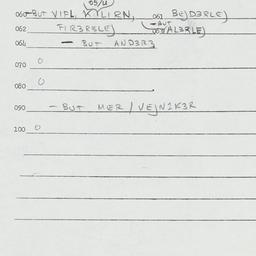 05/u
060 - BUT VIFL, KILIRN, 061 BEJDERLEJ
062 FIRERBLEJ - BUT ALERLEJ
064 - BUT ANDERZ
070 0
080 0
090 - BUT MER / VEJNIKER
100 0